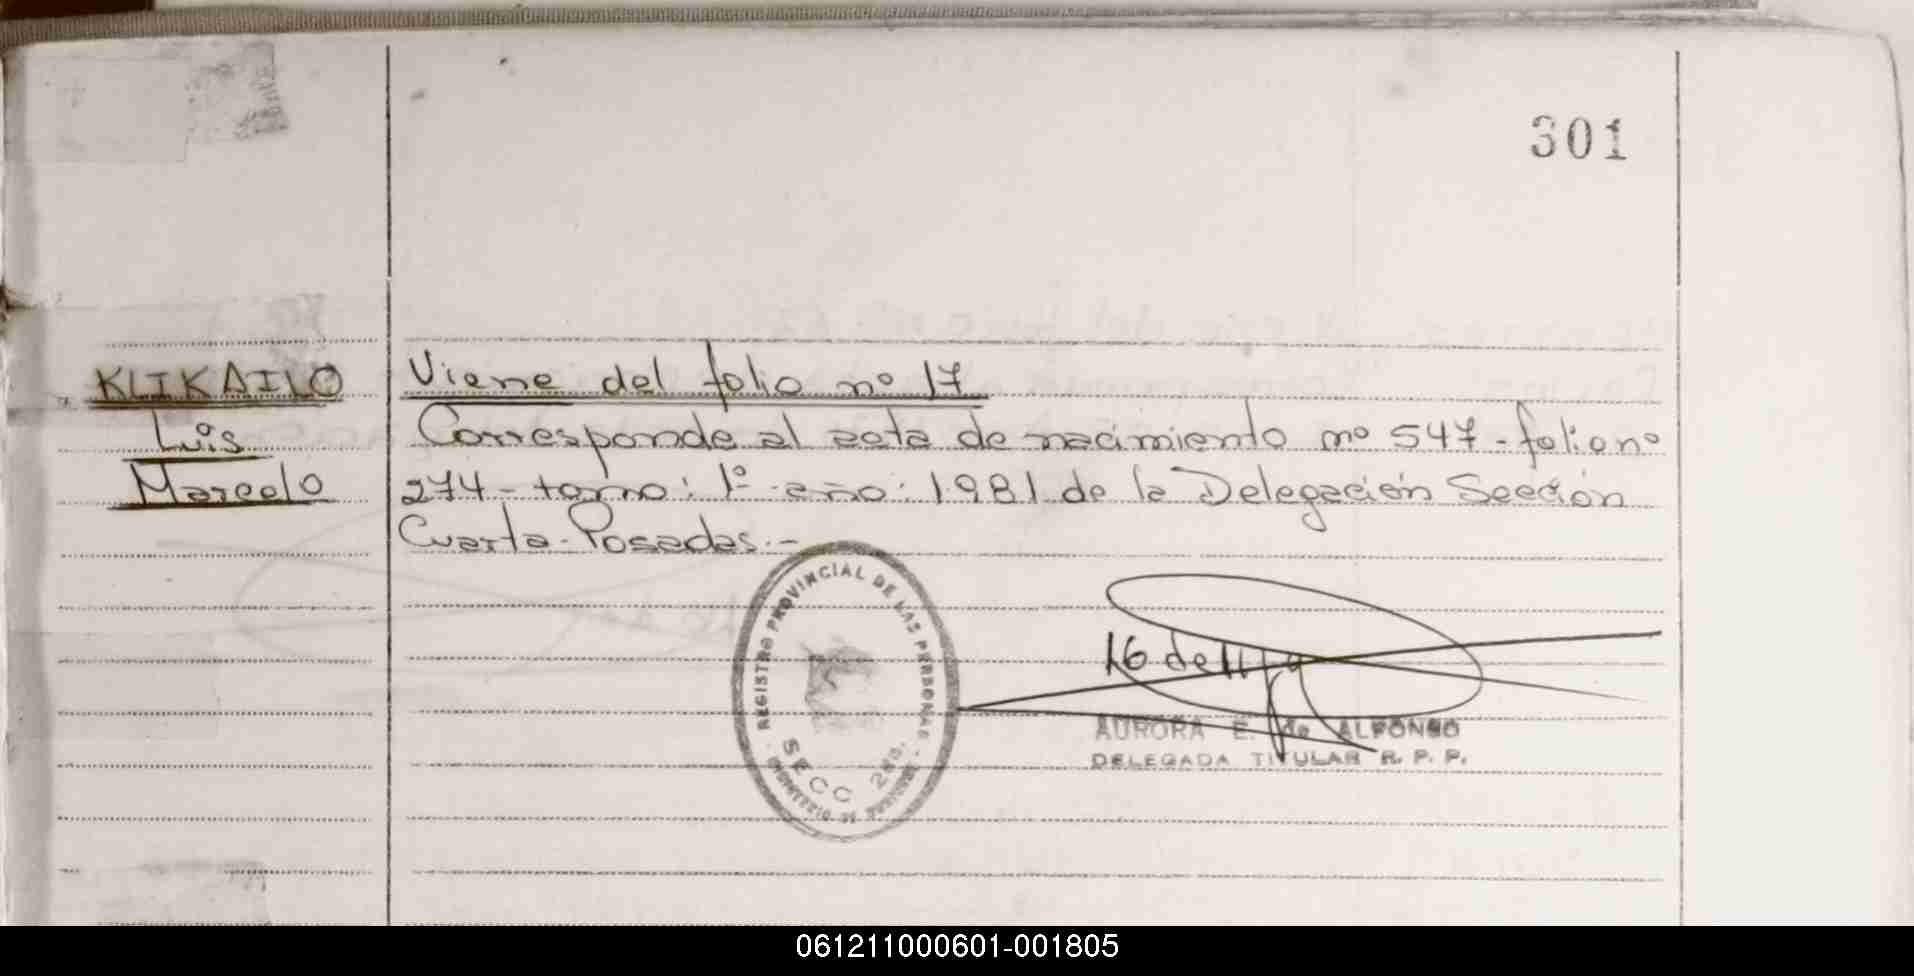 301
KLIKAILO
Luis
Marcelo
Viene del folio nº 17
Corresponde al acta de nacimiento nº 547 - folio nº
274 - tomo: 1º año: 1981 de la Delegación Sección
Cuarta - Posadas.-
REGISTRO PROVINCIAL DE LAS PERSONAS
SECC
16 de
AURORA E. de ALFONSO
DELEGADA TITULAR R. P. P.
061211000601-001805